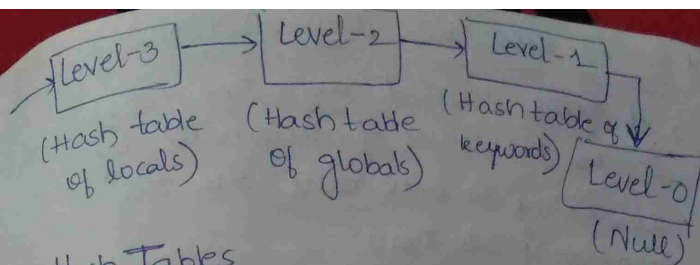 Level-3
Level-2
Level-1
(Hash table
of locals)
(Hash table
of globals)
(Hash table of
keywords)
Level-0
(Null)
Tables